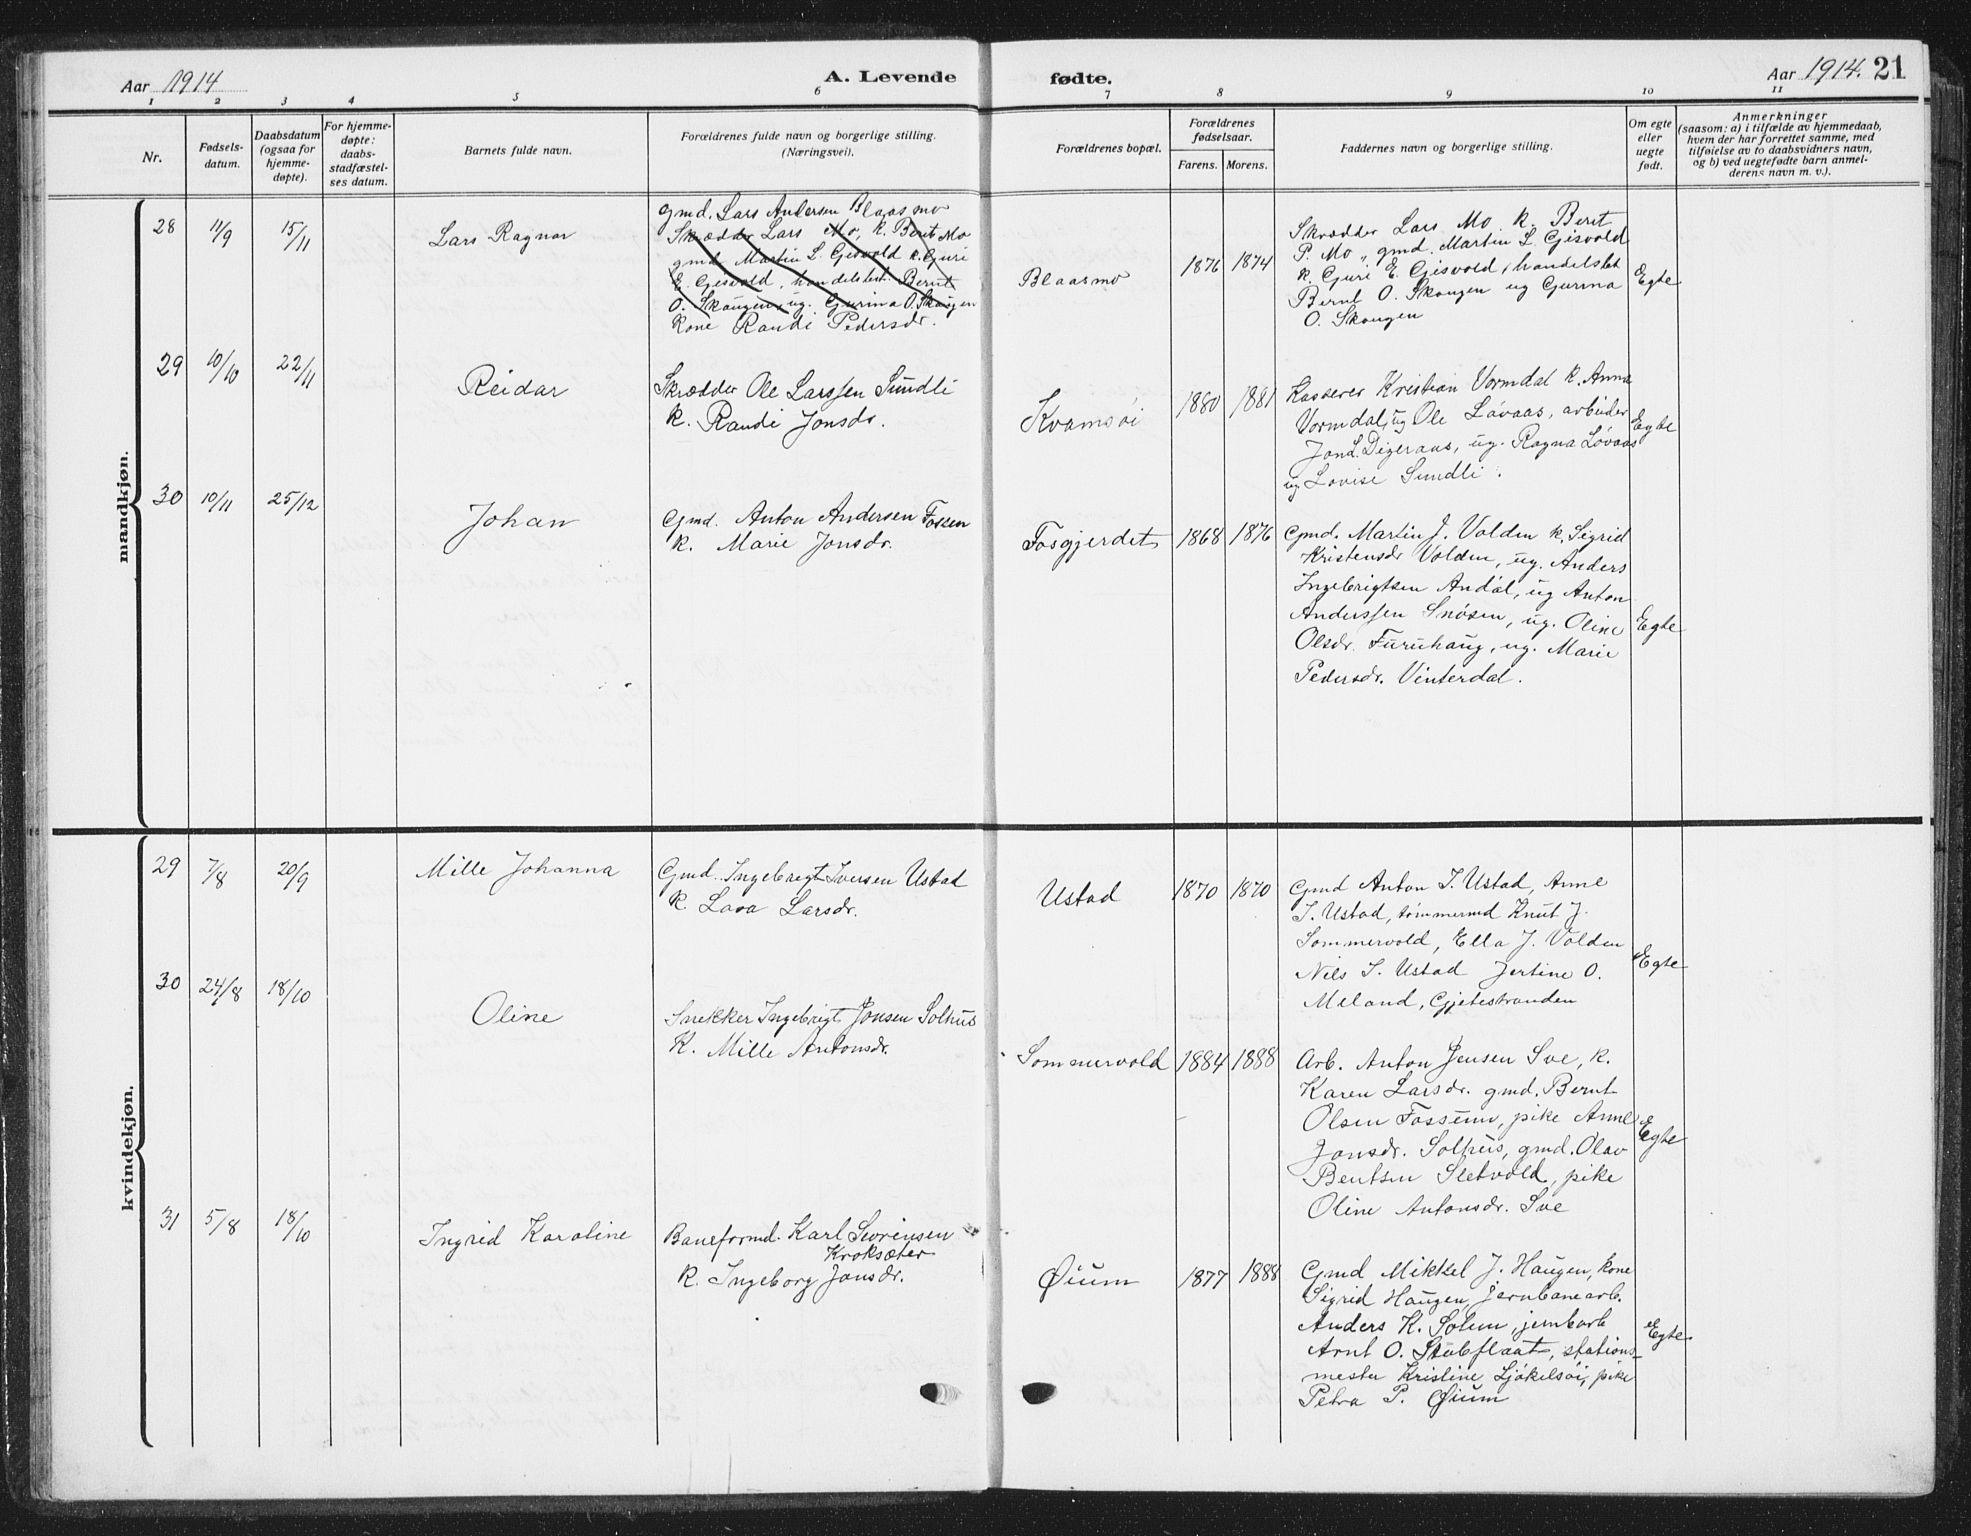 Aar 1914
A. Levende fødte.
Aar 1914. 21
1 2 3 4 5 6 7 8 9 10 11
Nr.
Fødsels-
datum.
Daabsdatum
(ogsaa for
hjemme-
døpte).
For hjemme-
døpte:
daabs-
stadfæstel-
ses datum.
Barnets fulde navn.
Forældrenes fulde navn og borgerlige stilling.
(Næringsvei).
Forældrenes bopæl.
Forældrenes
fødselsaar.
Farens. Morens.
Faddernes navn og borgerlige stilling.
Om egte
eller
uegte
født.
Anmerkninger
(saasom: a) i tilfælde av hjemmedaab,
hvem der har forrettet samme, med
tilføielse av to daabsvidners navn,
og b) ved uegtefødte barn anmel-
derens navn m. v.).
mandkjøn.
28 11/9 15/11
Lars Ragnar
gmd. Lars Andersen Blaasmo
Skrædder Lars Mo, k. Berit Mo
gmd Martin L. Gisvold k. Guri
E. Gisvold, handelsbet. Bernt
O. Skaugen, ug. Gurina O. Skaugen
Kone Randi Pedersdr.
Blaasmo
1876 1874
Skrædder Lars Mo k. Berit
P. Mo, gmd. Martin L. Gisvold
k. Guri E. Gisvold, handelsbet
Bernt O. Skaugen ug Gurina
O. Skaugen
Egte
29 10/10 22/11
Reidar
Skrædder Ole Larssen Sundli
k. Randi Jonsdr.
Kvamsøi
1880 1881
Kasserer Kristian Vormdal k. Anna
Vormdal, ug Ole Løvaas, arbeider
Jon L. Digeraas, ug. Ragna Løvaas
ug Lovise Sundli.
Egte
30 10/11 25/12
Johan
Gmd. Anton Andersen Fossen
k. Marie Jonsdr.
Fosgjerdet
1868 1876
Gmd. Martin J. Volden k. Sigrid
Kristensdr Volden, ug. Anders
Ingebrigtsen Andal, ug Anton
Anderssen Snøsen, ug. Oline
Olsdr. Furuhaug, ug. Marie
Pedersdr. Vinterdal.
Egte
kvindekjøn.
29 7/8 20/9
Mille Johanna
Gmd. Ingebrigt Iversen Ustad
k. Lava Larsdr.
Ustad
1870 1870
Gmd Anton I. Ustad, Anne
I. Ustad, tømmermd Knut J.
Sommervold, Ella J. Volden
Nils I. Ustad Jertine O.
Meland, Gjetestranden
Egte
30 24/8 18/10
Oline
Snekker Ingebrigt Jonsen Solhus
K. Mille Antonsdr.
Sommervold
1884 1888
Arb. Anton Jensen Sve, k.
Karen Larsdr. gmd. Bernt
Olsen Fossum, pike Anne
Jonsdr. Solhus, gmd. Olav
Bentsen Sletvold, pike
Oline Antonsdr. Sve
Egte
31 5/8 18/10
Ingrid Karoline
Baneformd. Karl Sørensen
Kroksæter
k. Ingeborg Jonsdr.
Øium
1877 1888
Gmd Mikkel J. Haugen, kone
Sigrid Haugen, jernbanearb.
Anders K. Solem, jernbarb
Arnt O. Stubflaat, stations-
mester Kristine Ljøkelsøi, pike
Petra P. Øium
Egte